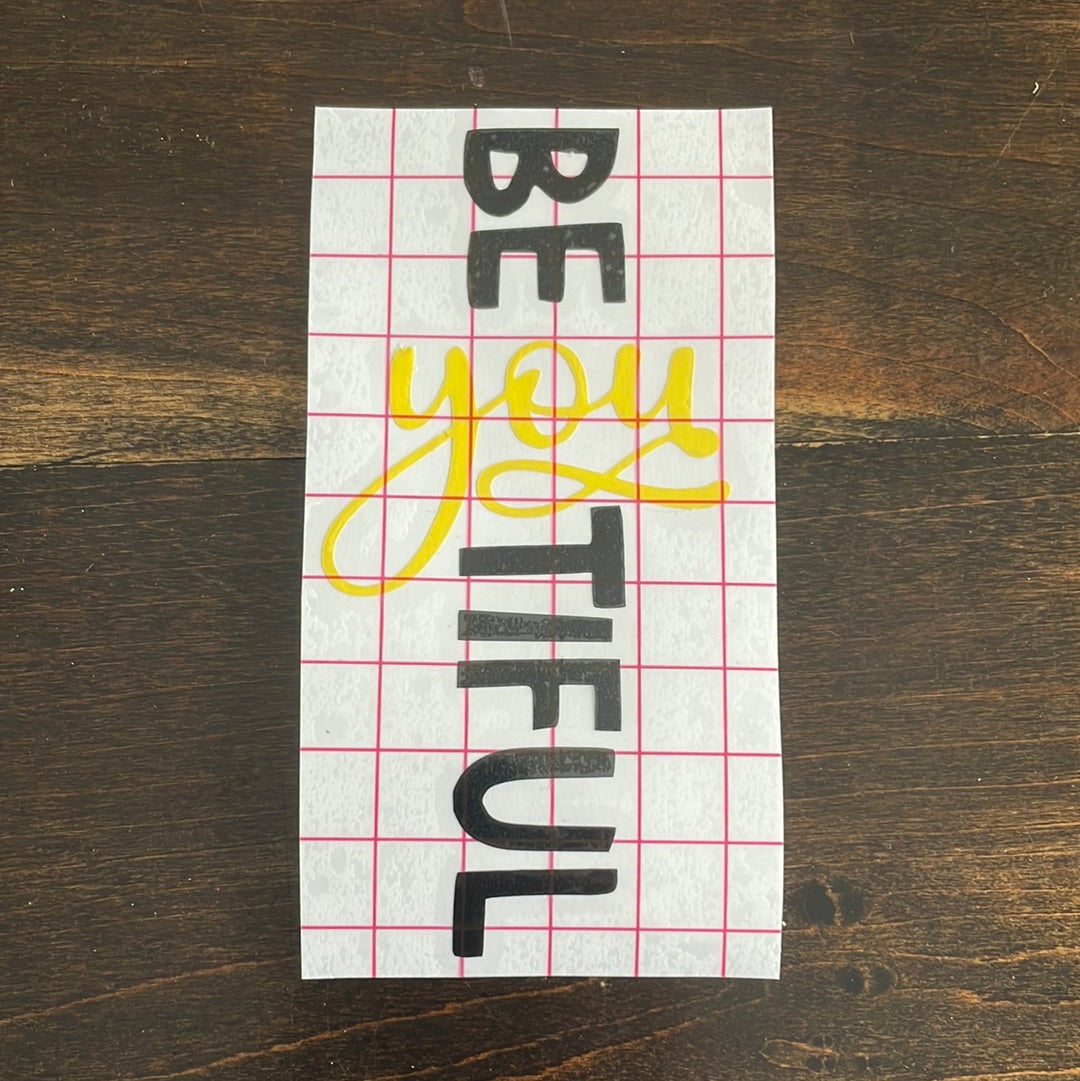 BE
you
TIFUL